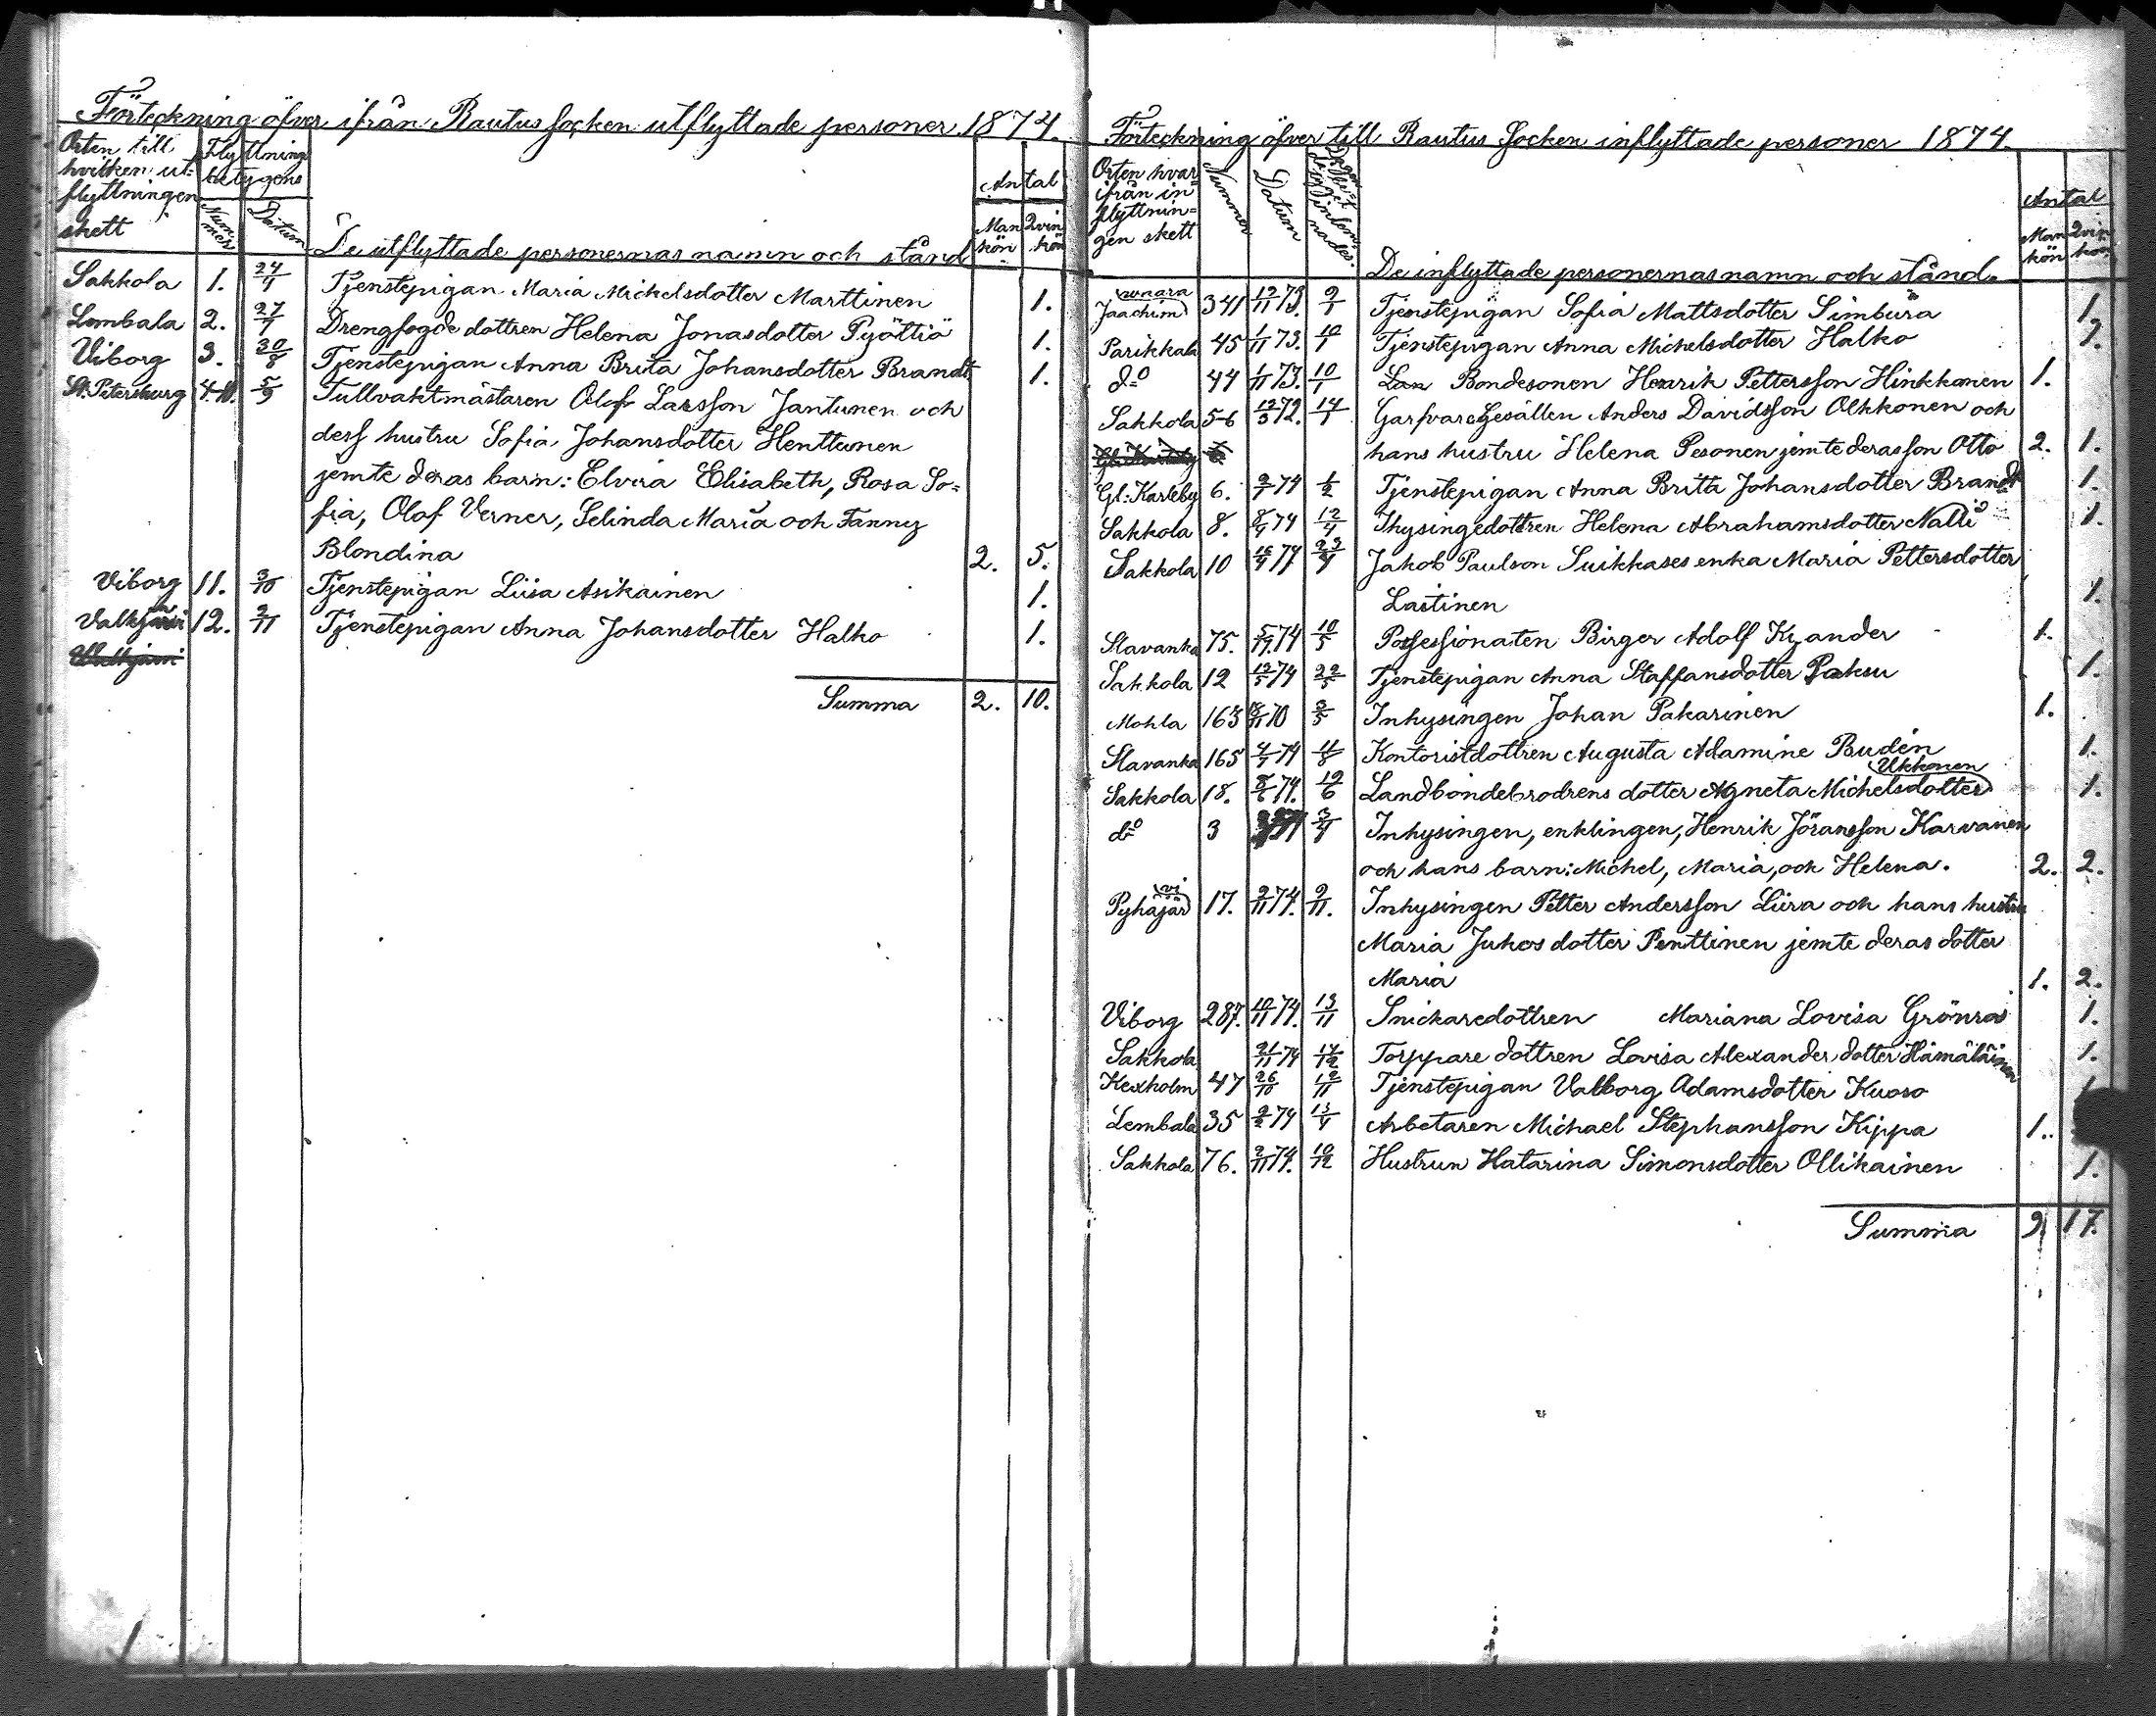 Förteckning öfver ifrån Rautus socken utflyttade personer 1874.
Orten till hvilken utflyttningen skett
Flyttningsbetygens
Nummer
Datum
De utflyttade personernas namn och stånd
Antal
Mankön
Qvinkön
Sakkola 1. 24/4 Tjenstepigan Maria Michelsdotter Marttinen 1.
Lembala 2. 27/7 Drengfogde dottren Helena Jonasdotter Pyöttiö 1.
Viborg 3. 30/8 Tjenstepigan Anna Brita Johansdotter Brandt 1.
St. Petersburg 4-10. 5/9 Tullvaktmästaren Olof Larsson Jantunen och
dess hustru Sofia Johansdotter Henttunen
jemte deras barn: Elvira Elisabeth, Rosa So=
fia, Olof Verner, Selinda Maria och Fanny
Blondina 2. 5.
Viborg 11. 3/10 Tjenstepigan Liisa Asikainen 1.
Valkjärvi 12. 2/11 Tjenstepigan Anna Johansdotter Halko 1.
Valkjärvi
Summa 2. 10.
Förteckning öfver till Rautus socken inflyttade personer 1874.
Orten hvarifrån inflyttnin=
gen skett
Nummer
Datum
De inflyttade personernas namn och stånd.
Antal
Mankön
Qvinkön
Joachimvaara 341 12/11 73. 9/1 Tjenstepigan Sofia Mattsdotter Simbura 1.
Parikkala 45 1/11 73. 10/1 Tjenstepigan Anna Michelsdotter Halko 1.
do 44 1/11 73. 10/1 Bondesonen Henrik Pettersson Hinkkanen 1.
Sakkola 5-6 12/3 72. 14/1 Garfvare Gesällen Anders Davidsson Olkkonen och
hans hustru Helena Pesonen jemte deras son Otto 2. 1.
Gl: Karleby 6. 9/1 74 1/2 Tjenstepigan Anna Brita Johansdotter Brandt 1.
Sakkola 8. 8/4 74 12/4 Ihysingedottren Helena Abrahamsdotter Nalli 1.
Sakkola 10 16/4 74 23/4 Jakob Paulson Suikkases enka Maria Pettersdotter
Lastinen 1.
Slavanka 75. 74 10/5 Possessionaten Birger Adolf Kyander 1.
Sakkola 12 12/5 74 22/5 Tjenstepigan Anna Staffansdotter Paksu 1.
Mohla 163 8/11 70 3/5 Inhysingen Johan Pakarinen 1.
Slavanka 165 4/7 74 11/8 Kontoristdottren Augusta Adamine Budén 1.
Sakkola 18. 74. 12/6 Landbondebrodrens dotter Agneta Michelsdotter Ukkonen 1.
do 3 3/4 Inhysingen, enklingen, Henrik Jöransson Karvanen
och hans barn: Michel, Maria, och Helena. 2. 2.
Pyhäjärvi 17. 2/11 74. 9/11. Inhysingen Petter Andersson Liira och hans hustru
Maria Jukos dotter Penttinen jemte deras dotter
Maria 1. 2.
Viborg 287. 10/11 74. 13/11 Snickaredottren Mariana Lovisa Grönroos 1.
Sakkola 21/11 74 14/12 Torppare dottren Lovisa Alexander dotter Hämäläinen 1.
Kexholm 47 26/10 12/11 Tjenstepigan Valborg Adamsdotter Kuoso
Lembala 35 2/2 74 13/4 Arbetaren Michael Stephansson Kippa 1.
Sakkola 76. 2/11 74. 10/12 Hustrun Katarina Simonsdotter Ollikainen 1.
Summa 9. 17.